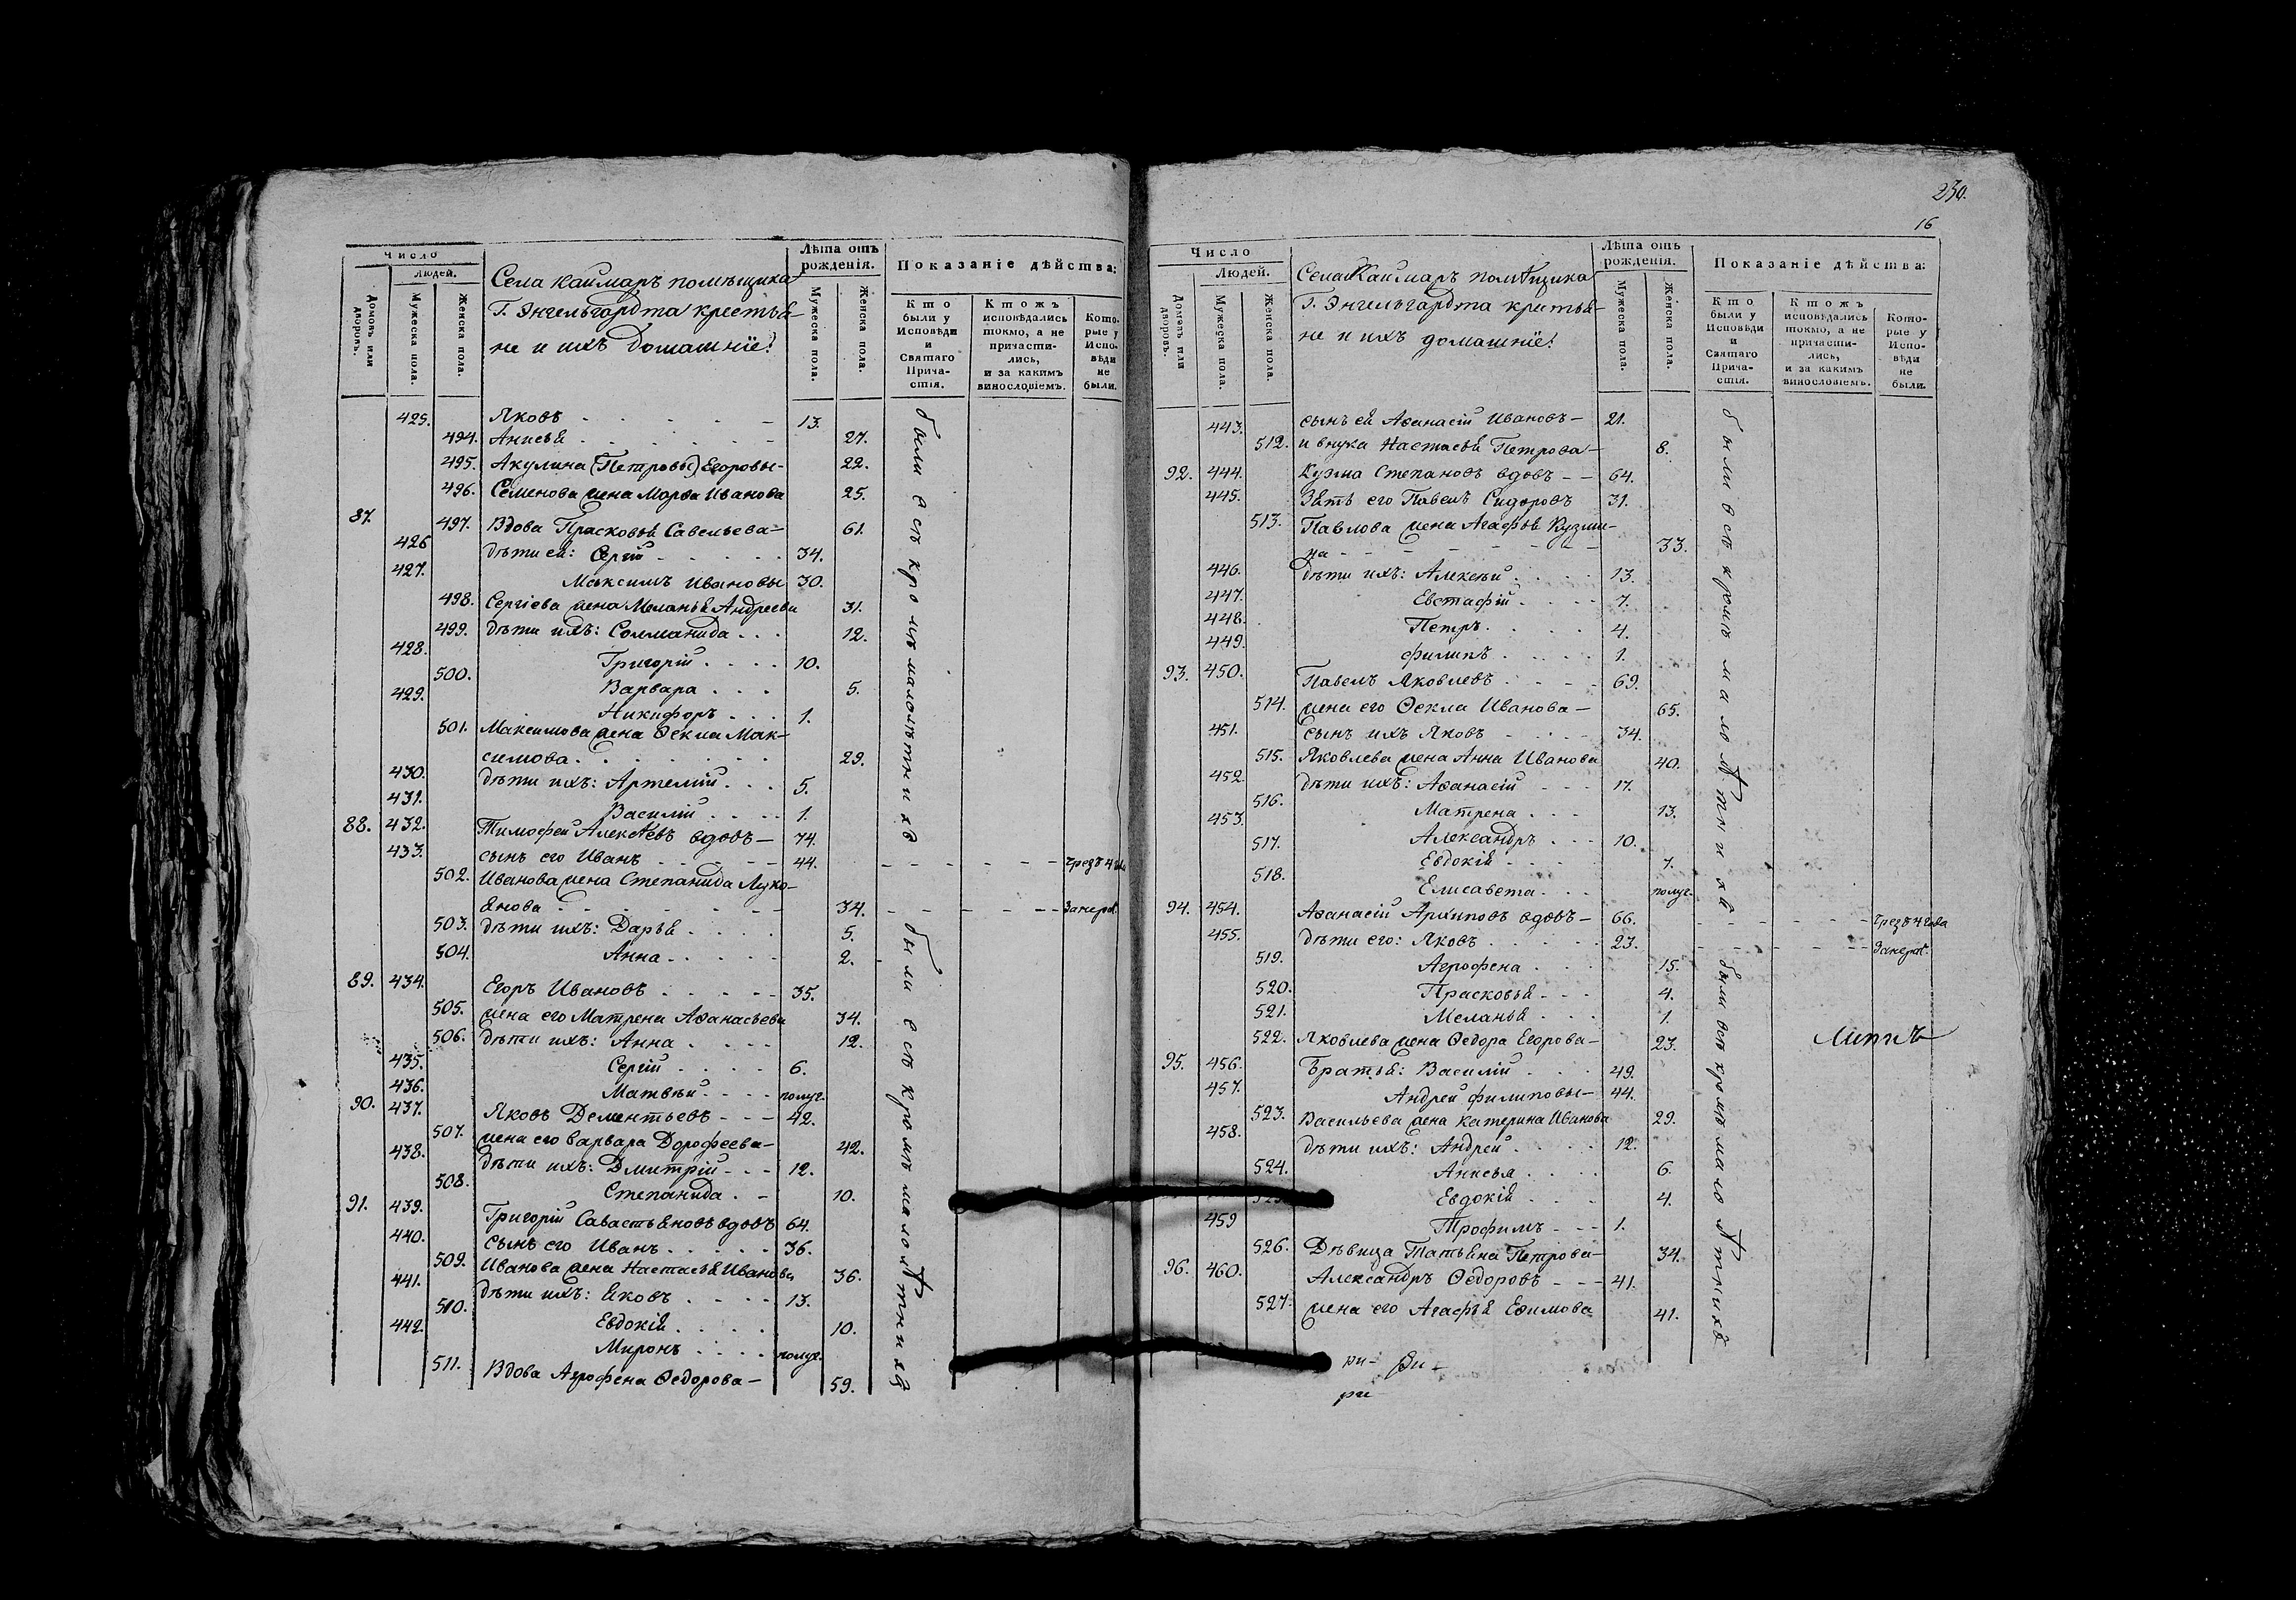 Число
Людей.
Домовъ или дворовъ.
Мужеска пола.
Женска пола.
Села Каймаръ помѣщика
Г. Энгельгардта крестья-
не и ихъ домашніе:
Лѣта отъ рожденія.
Мужеска пола.
Женска пола.
Показаніе дѣйства:
Кто были у Исповѣди и Святаго Прича-стія.
Ктожъ исповѣдались токмо, а не причасти-лись, и за какимъ винословіемъ.
Кото-рые у Испо-вѣди не были.
425. Яковъ 13.
494. Анисья 27.
495. Акулина (Петровы) Егоровы- 22.
496. Семенова жена Марѳа Иванова 25.
87. 497. Вдова Прасковья Савельева- 61.
426 дѣти ея: Сергій 34.
427. Максимъ Ивановы 30.
498. Сергіева жена Меланья Андреева 31.
499. дѣти ихъ: Соломанида 12.
428. Григорій 10.
500. Варвара 5.
429. Никифоръ 1.
501. Максимова жена Ѳекла Мак-
симова 29.
430. дѣти ихъ: Артемій 5.
431. Василій 1.
88. 432. Тимофей Алексѣевъ вдовъ- 74.
433. сынъ его Иванъ 44.
502. Иванова жена Степанида Луко-
янова 34.
503. дѣти ихъ: Дарья 5.
504. Анна 2.
89. 434. Егоръ Ивановъ 35.
505. жена его Матрена Аѳанасьева 34.
506. дѣти ихъ: Анна 12.
435. Сергій 6.
436. Матвѣй полуг.
90. 437. Яковъ Дементьевъ 42.
507. жена его Варвара Дорофеева- 42.
438. дѣти ихъ: Дмитрій 12.
508. Степанида 10.
91. 439. Григорій Савастьяновъ вдовъ 64.
440. сынъ его Иванъ 36.
509. Иванова жена Настасья Иванова 36.
441. дѣти ихъ: Яковъ 13.
510. Евдокія 10.
442. Миронъ полуг.
511. Вдова Агрофена Ѳедорова- 59.
были всѣ кромѣ малолѣтнихъ
были всѣ кромѣ малолѣтнихъ
230.
16
Число
Людей.
Домовъ или дворовъ.
Мужеска пола.
Женска пола.
Села Каймаръ помѣщика
Г. Энгельгардта крестья-
не и ихъ домашніе:
Лѣта отъ рожденія.
Мужеска пола.
Женска пола.
Показаніе дѣйства:
Кто были у Исповѣди и Святаго Прича-стія.
Ктожъ исповѣдались токмо, а не причасти-лись, и за какимъ винословіемъ.
Кото-рые у Испо-вѣди не были.
443. сынъ ея Аѳанасій Ивановъ- 21.
512. и внука Настасья Петрова- 8.
92. 444. Кузма Степановъ вдовъ 64.
445. Зять его Павелъ Сидоровъ 31.
513. Павлова жена Агафья Кузми-
на 33.
446. дѣти ихъ: Алексѣй 13.
447. Евстафій 7.
448. Петръ 4.
449. Филипъ 1.
93. 450. Павелъ Яковлевъ 69.
514. жена его Ѳекла Иванова- 65.
451. сынъ ихъ Яковъ 34.
515. Яковлева жена Анна Иванова 40.
452. дѣти ихъ: Аѳанасій 17.
516. Матрена 13.
453. Александръ 10.
517. Евдокія 7.
518. Елисавета полуг.
94. 454. Аѳанасій Архиповъ вдовъ- 66. Чрезъ 4 года
455. дѣти его: Яковъ 23.
519. Агрофена 15.
520. Прасковья 4.
521. Меланья 1.
522. Яковлева жена Ѳедора Егорова- 23.
95. 456. Братья: Василій 49.
457. Андрей Филиповы- 44.
523. Васильева жена Катерина Иванова 29.
458. дѣти ихъ: Андрей 12.
524. Анисья 6.
525. Евдокія 4.
459 Трофимъ 1.
526. Дѣвица Татьяна Петрова- 34.
96. 460. Александръ Ѳедоровъ 41.
527. жена его Агафья Ефимова 41.
были всѣ кромѣ малолѣтнихъ
были всѣ кромѣ малолѣтнихъ